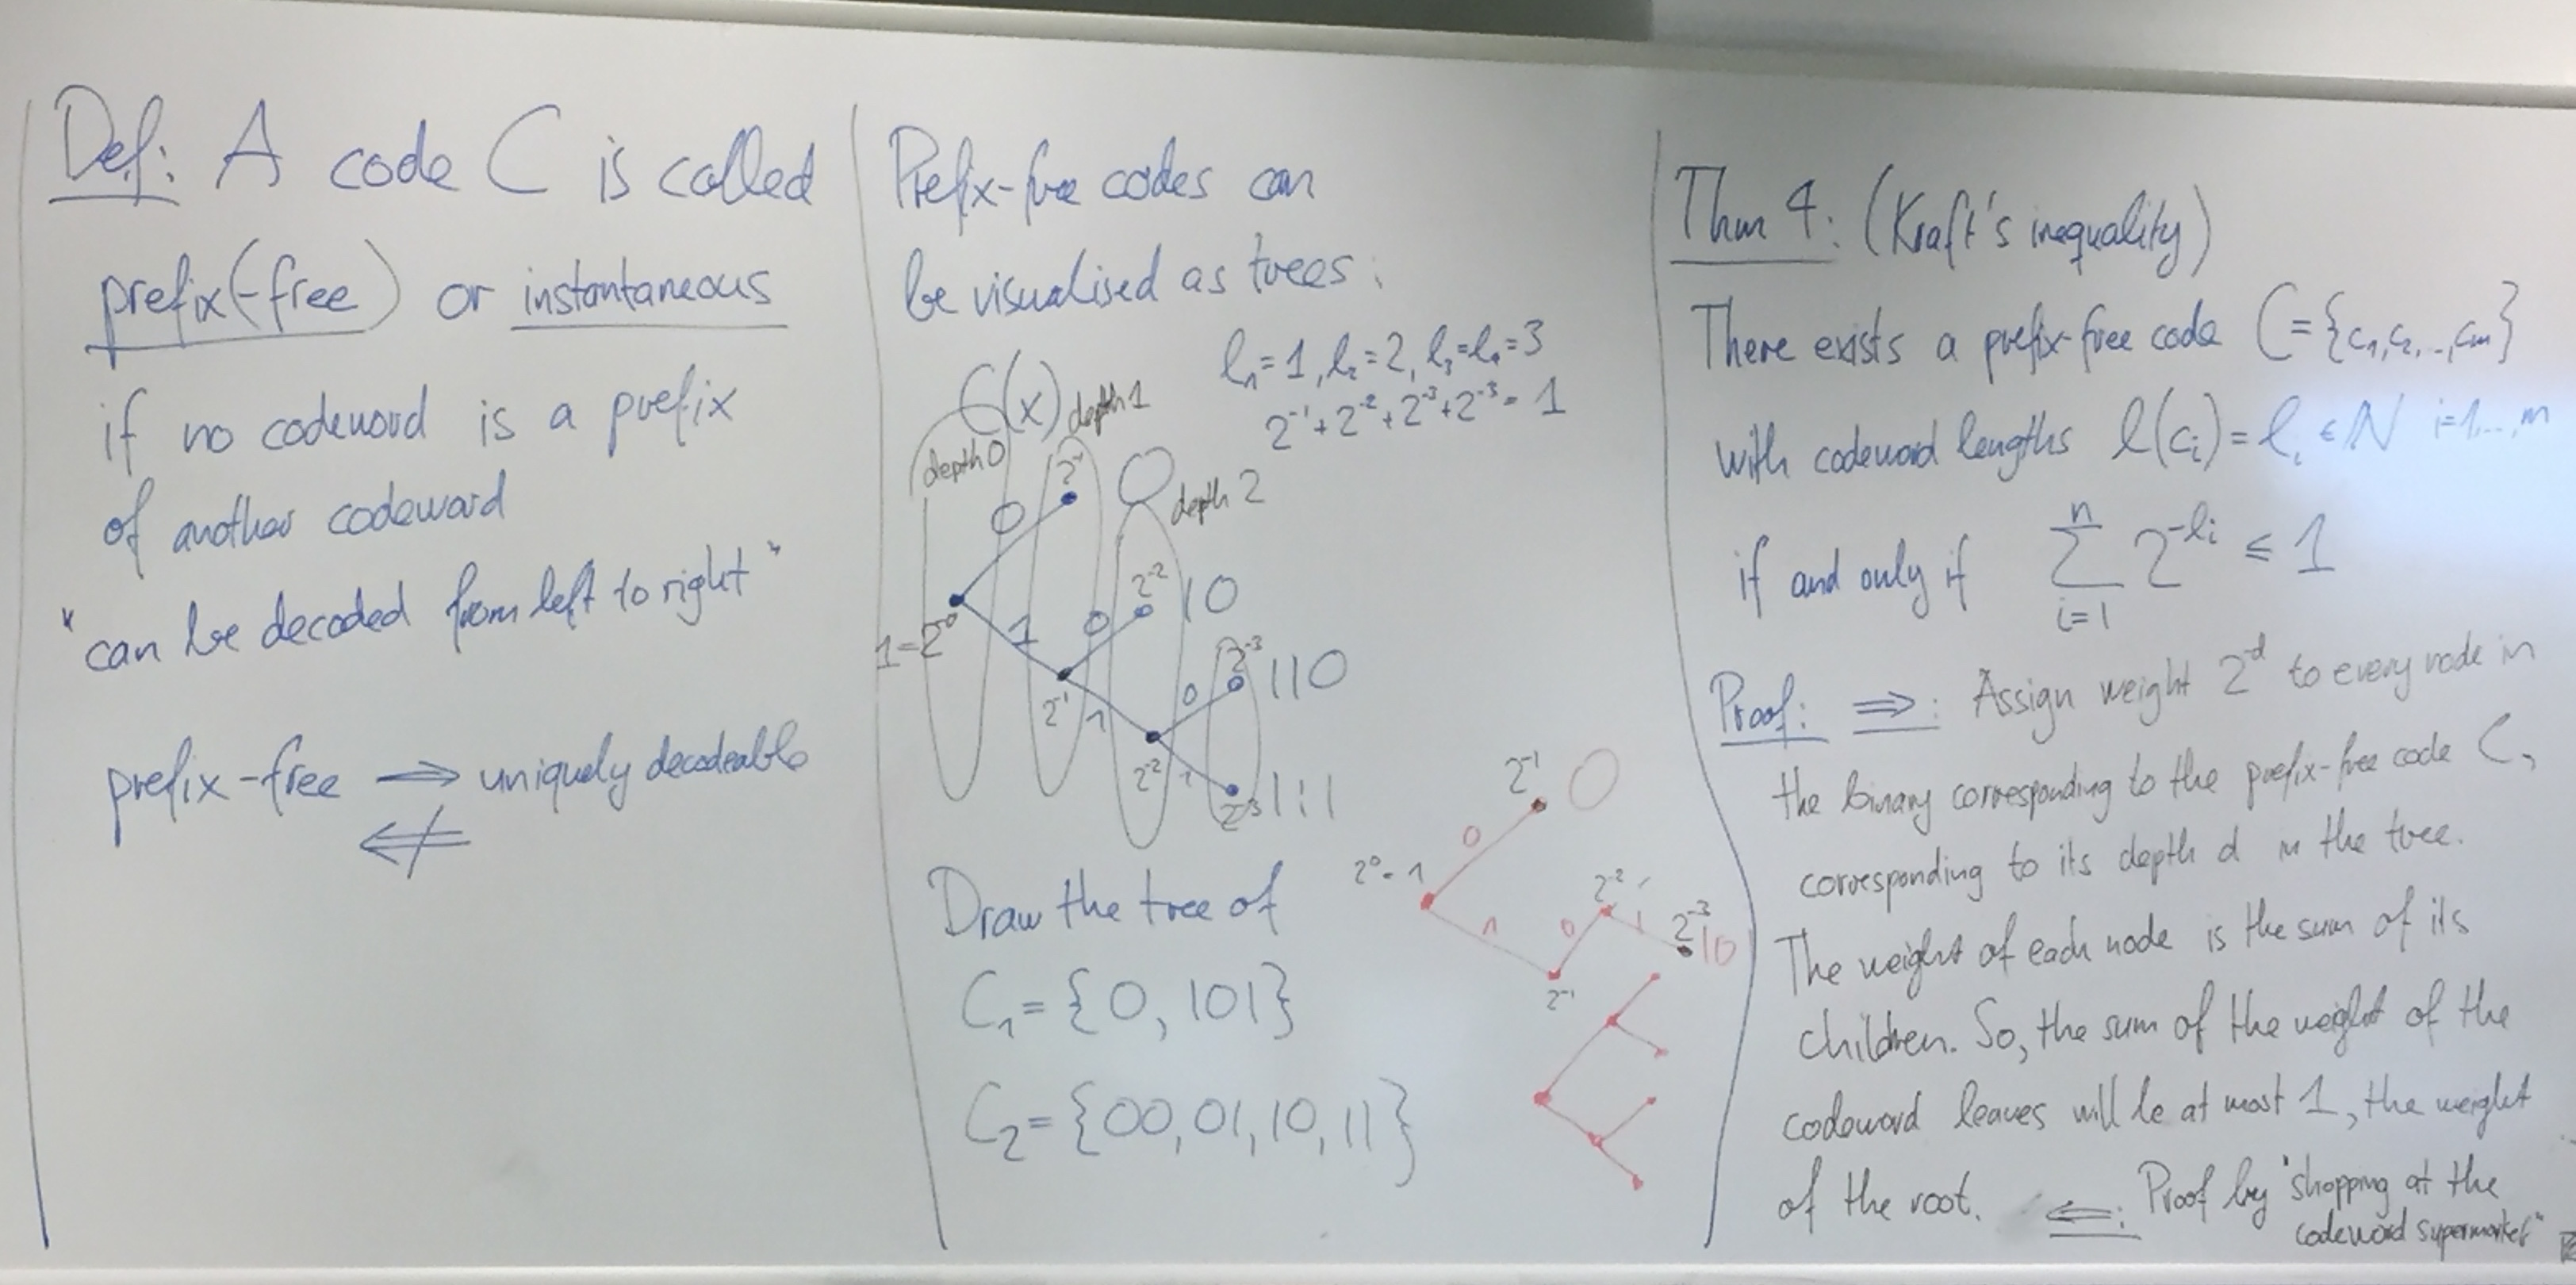 Def: A code C is called
prefix(-free) or instantaneous
if no codeword is a prefix
of another codeward
"can be decoded from left to right"
prefix-free ⟹ uniquely decodeable
⟸̸
Prefix-free codes can
be visualised as trees:
l₁=1, l₂=2, l₃=l₄=3
2⁻¹+2⁻²+2⁻³+2⁻³=1
C(x)
depth 0
depth 1
depth 2
0
2⁻¹
0
1=2⁰
1
0
2⁻²
10
2⁻¹
1
0
2⁻³
110
2⁻²
1
2⁻³
111
Draw the tree of
C₁={0,101}
C₂={00,01,10,11}
2⁻¹
0
0
2⁰=1
1
0
2⁻²
1
2⁻³
10
2⁻¹
Thm 4: (Kraft's inequality)
There exists a prefix-free code C={c₁,c₂,..,cₘ}
with codeword lengths l(cᵢ)=lᵢ∈ℕ i=1,..,m
if and only if ∑ᵢ₌₁ⁿ 2^(-lᵢ) ≤ 1
Proof: ⟹: Assign weight 2^(-d) to every node in
the binary corresponding to the prefix-free code C,
corresponding to its depth d in the tree.
The weight of each node is the sum of its
children. So, the sum of the weight of the
codeword leaves will be at most 1, the weight
of the root. ⟸: Proof by "shopping at the
codeword supermarket"